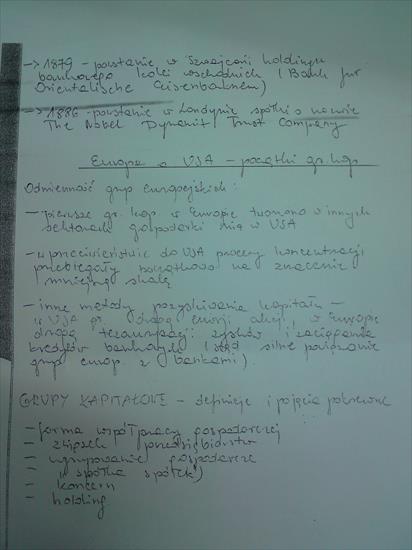 → 1879 - powstanie w Szwajcarii holdingu
bankowego kolei wschodnich (Bank für
Orientalische Eisenbahnen)
→ 1886 - powstanie w Londynie spółki o nazwie
The Nobel Dynamit Trust Company
Europa a USA - początki gr. kap
Odmienność grup europejskich:
- pierwsze gr. kap w Europie tworzono w innych
sektorach gospodarki niż w USA
- w przeciwieństwie do USA procesy koncentracji
przebiegały początkowo na znacznie
mniejszą skalę
- inne metody pozyskiwania kapitału -
w USA gł. drogą emisji akcji, w Europie
drogą tezauryzacji zysków i zaciągania
kredytów bankowych (stąd silne powiązanie
grup europ z bankami).
GRUPY KAPITAŁOWE - definicje i pojęcia pokrewne
- forma współpracy gospodarczej
- związek przedsiębiorstw
- ugrupowanie gospodarcze
- "spółka spółek")
- koncern
- holding